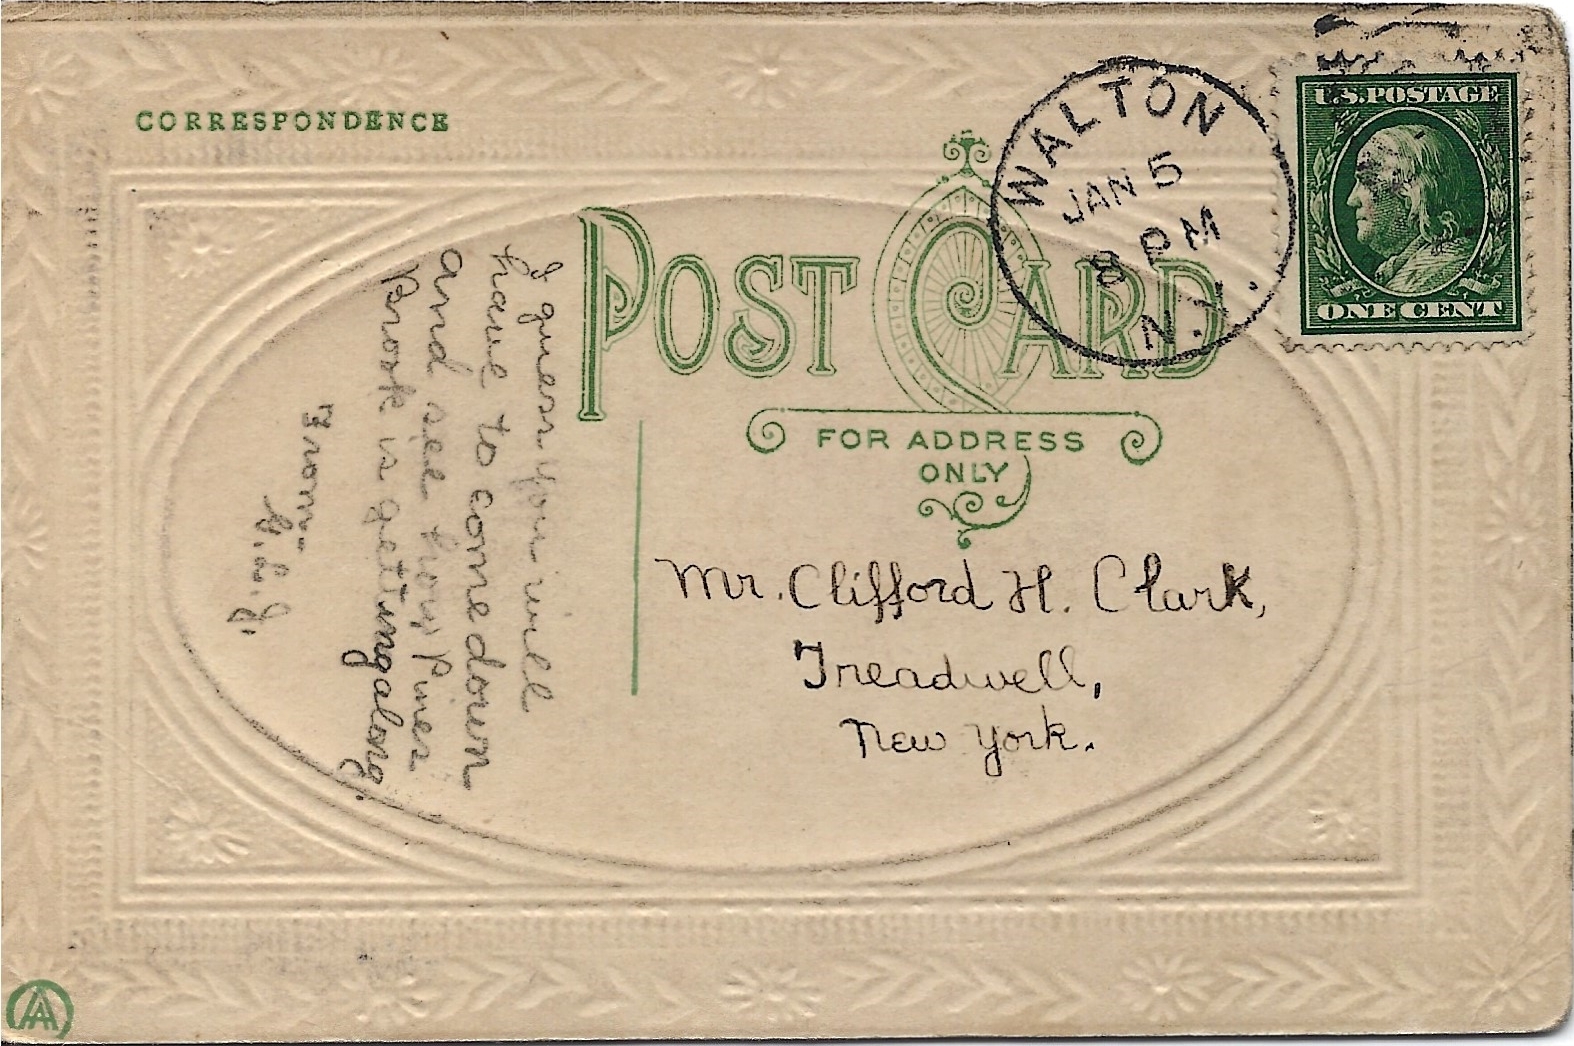 CORRESPONDENCE
POST CARD
FOR ADDRESS
ONLY
WALTON
JAN 5
8 PM
N.Y.
U.S. POSTAGE
ONE CENT
I guess you will
have to come down
and see how Pines
Brook is getting along.
From
Mr. Clifford H. Clark,
Treadwell,
New York.